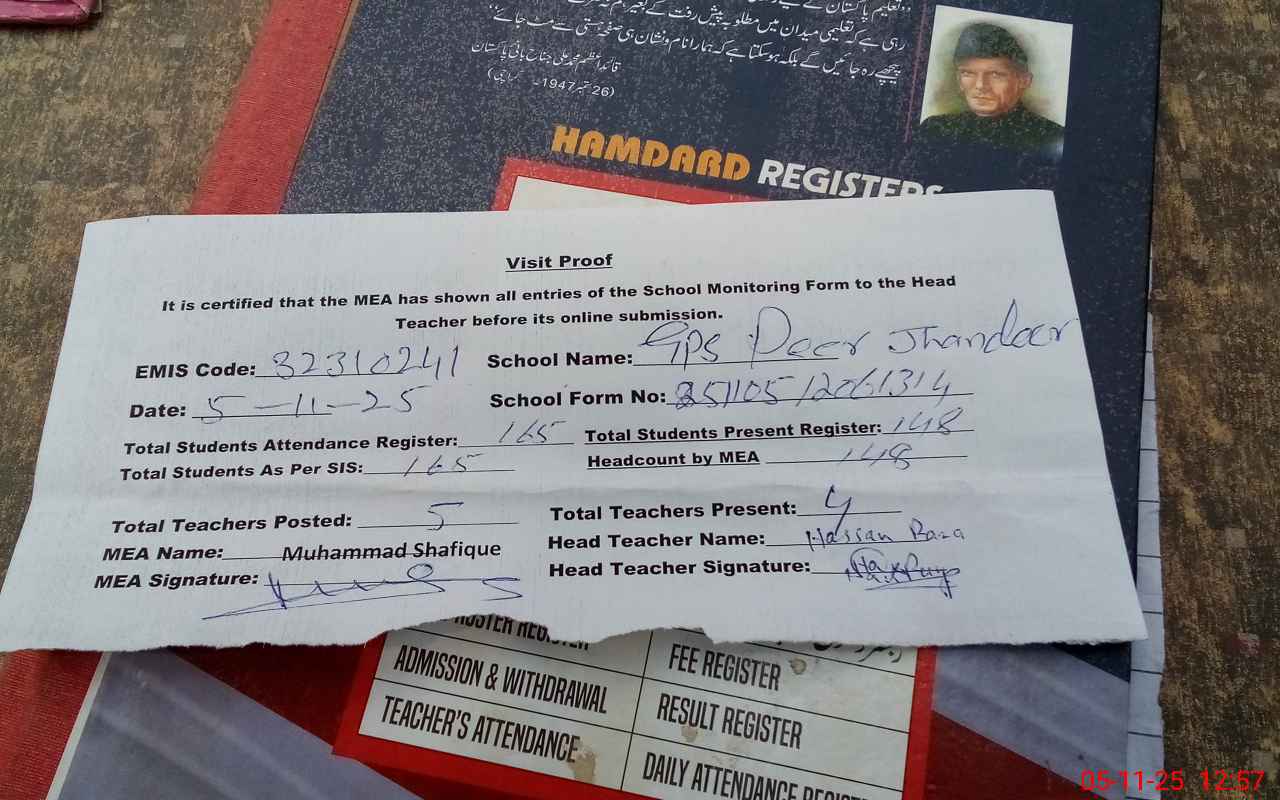 پیچھے رہ جائیں گے بلکہ ہو سکتا ہے کہ ہمارا نام و نشان ہی صفحہ ہستی سے مٹ جائے‘‘
قائداعظم محمد علی جناح بانی پاکستان
(26 ستمبر 1947ء۔ کراچی)
HAMDARD REGISTERS
Visit Proof
It is certified that the MEA has shown all entries of the School Monitoring Form to the Head
Teacher before its online submission.
EMIS Code: 32310241 School Name: GPS Peer Jhandeer
Date: 5-11-25 School Form No: 251105/2061314
Total Students Attendance Register: 165 Total Students Present Register: 148
Total Students As Per SIS: 165 Headcount by MEA 148
Total Teachers Posted: 5 Total Teachers Present: 4
MEA Name: Muhammad Shafique Head Teacher Name: Hassan Raza
MEA Signature: Head Teacher Signature:
ADMISSION & WITHDRAWAL FEE REGISTER
TEACHER'S ATTENDANCE RESULT REGISTER
DAILY ATTENDANCE
05-11-25 12:57